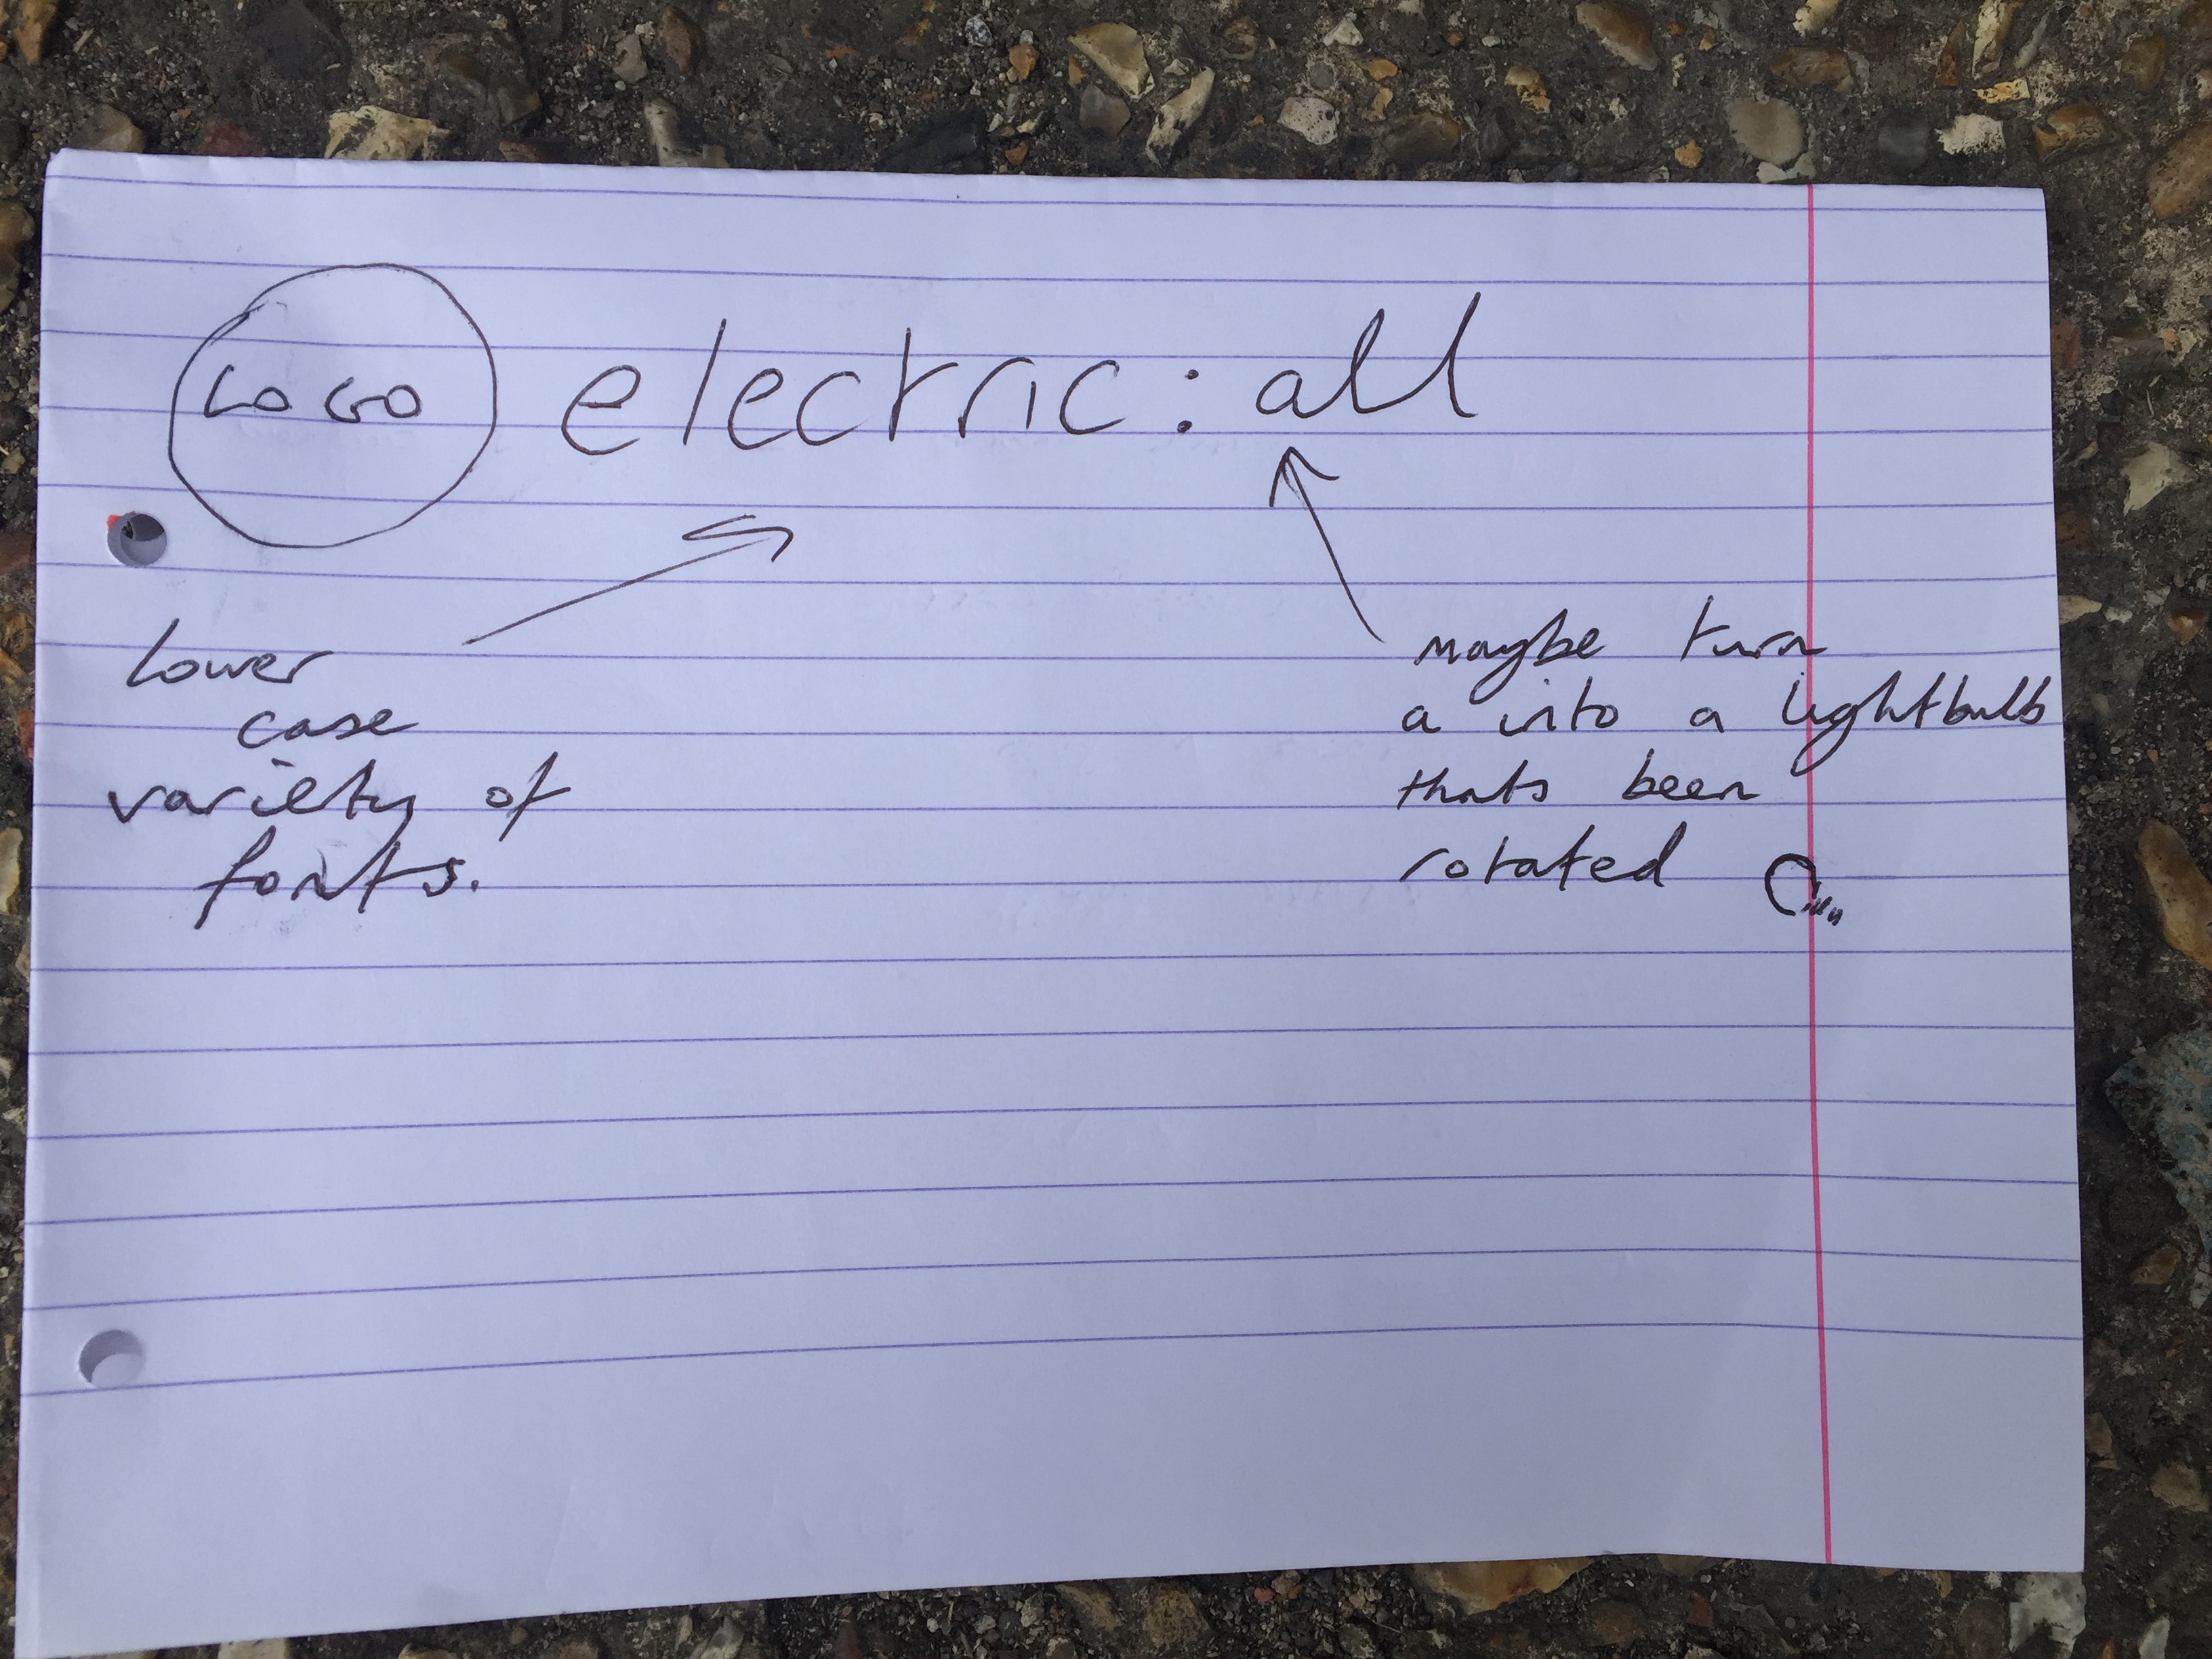 LOGO electric: all
Lower
case
variety of
fonts.
maybe turn
a into a lightbulb
thats been
rotated